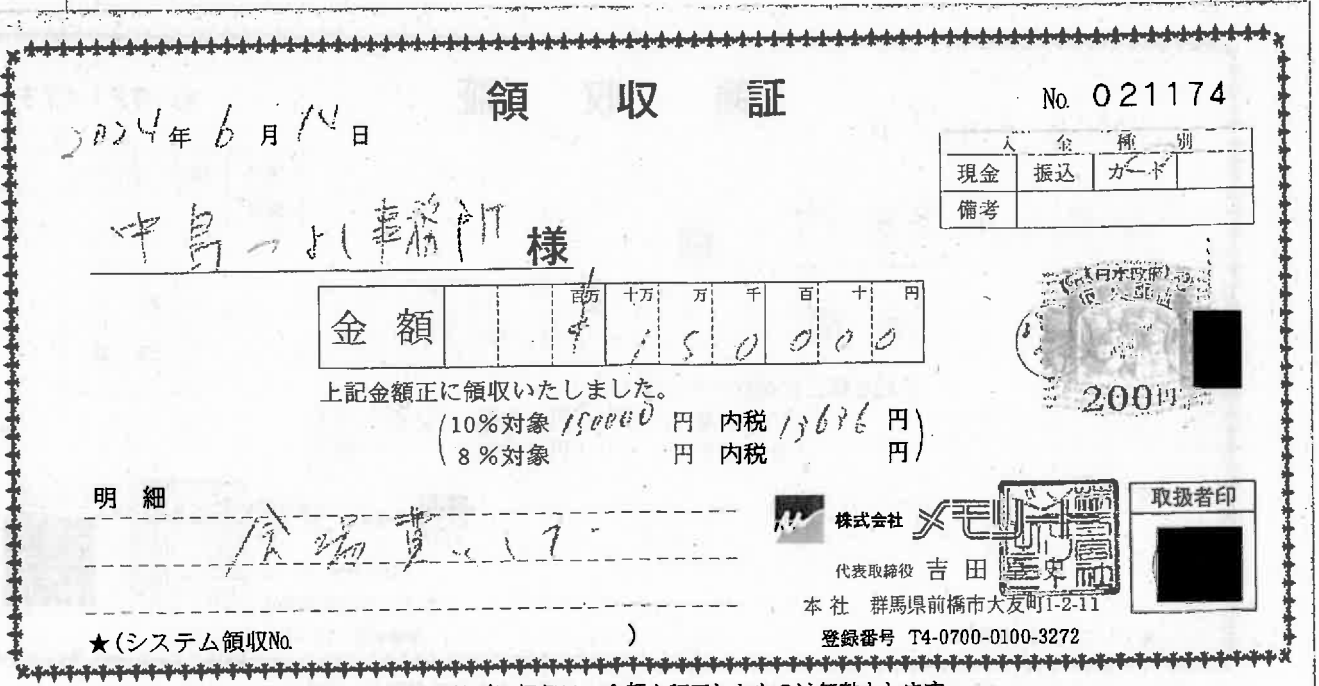 領収証
No. 021174
2024年6月14日
入金種別
現金 振込 カード
備考
中島つよし事務所 様
金額 百万 十万 万 千 百 十 円
¥150000
上記金額正に領収いたしました。
(10%対象 150000 円 内税 13636 円)
(8%対象 円 内税 円)
日本政府
200円
明細
会場費として
株式会社 メモリード
代表取締役 吉田
本社 群馬県前橋市大友町1-2-11
登録番号 T4-0700-0100-3272
取扱者印
★(システム領収No. )